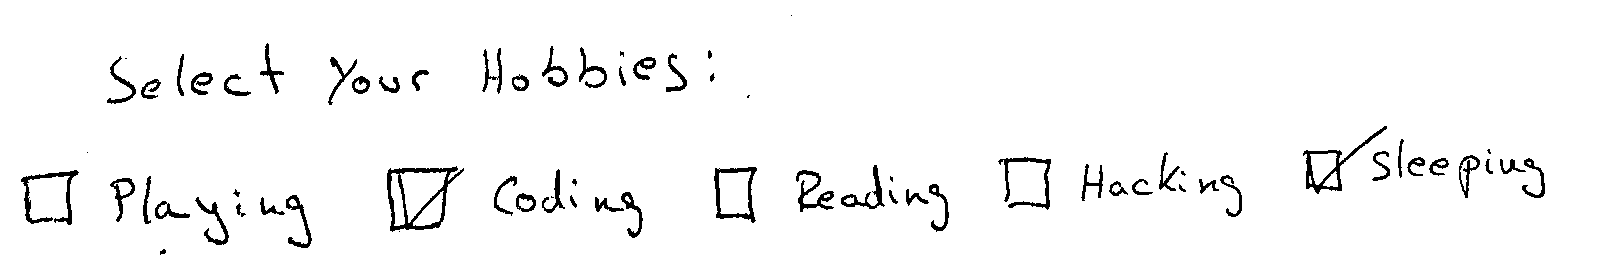 Select Your Hobbies:
☐ Playing ☑ Coding ☐ Reading ☐ Hacking ☑ Sleeping